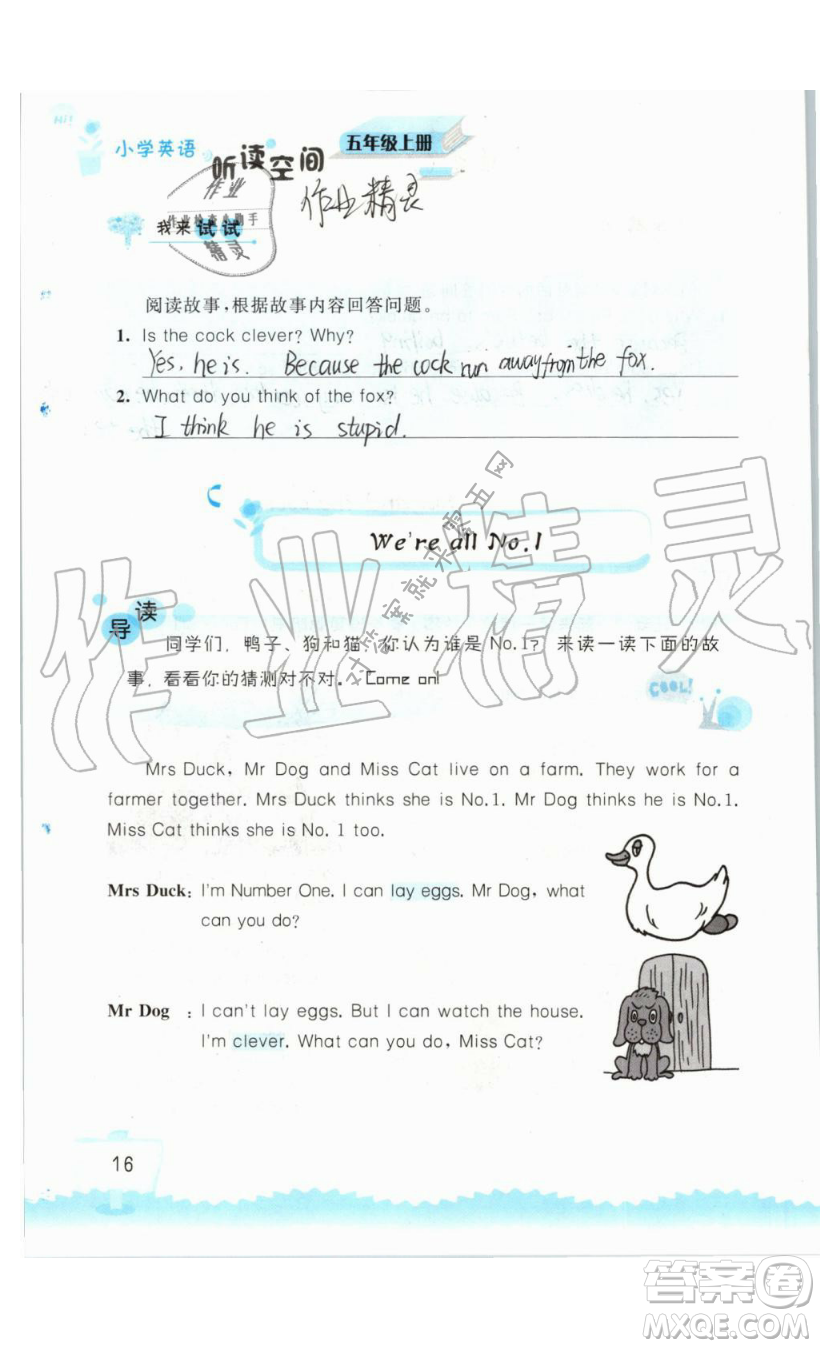 Hi!
小学英语
听读空间
五年级上册
作业
作业检查小助手
精灵
作业精灵
我来试试
阅读故事，根据故事内容回答问题。
1. Is the cock clever? Why?
Yes, he is. Because the cock run away from the fox.
2. What do you think of the fox?
I think he is stupid.
We're all No.1
导读
同学们，鸭子、狗和猫，你认为谁是 No.1？ 来读一读下面的故
事，看看你的猜测对不对。 Come on!
COOL!
作业精灵
对答案就来零五网
Mrs Duck, Mr Dog and Miss Cat live on a farm. They work for a
farmer together. Mrs Duck thinks she is No.1. Mr Dog thinks he is No.1.
Miss Cat thinks she is No. 1 too.
Mrs Duck: I'm Number One. I can lay eggs. Mr Dog, what
can you do?
Mr Dog : I can't lay eggs. But I can watch the house.
I'm clever. What can you do, Miss Cat?
16
答案卷
MXQE.COM